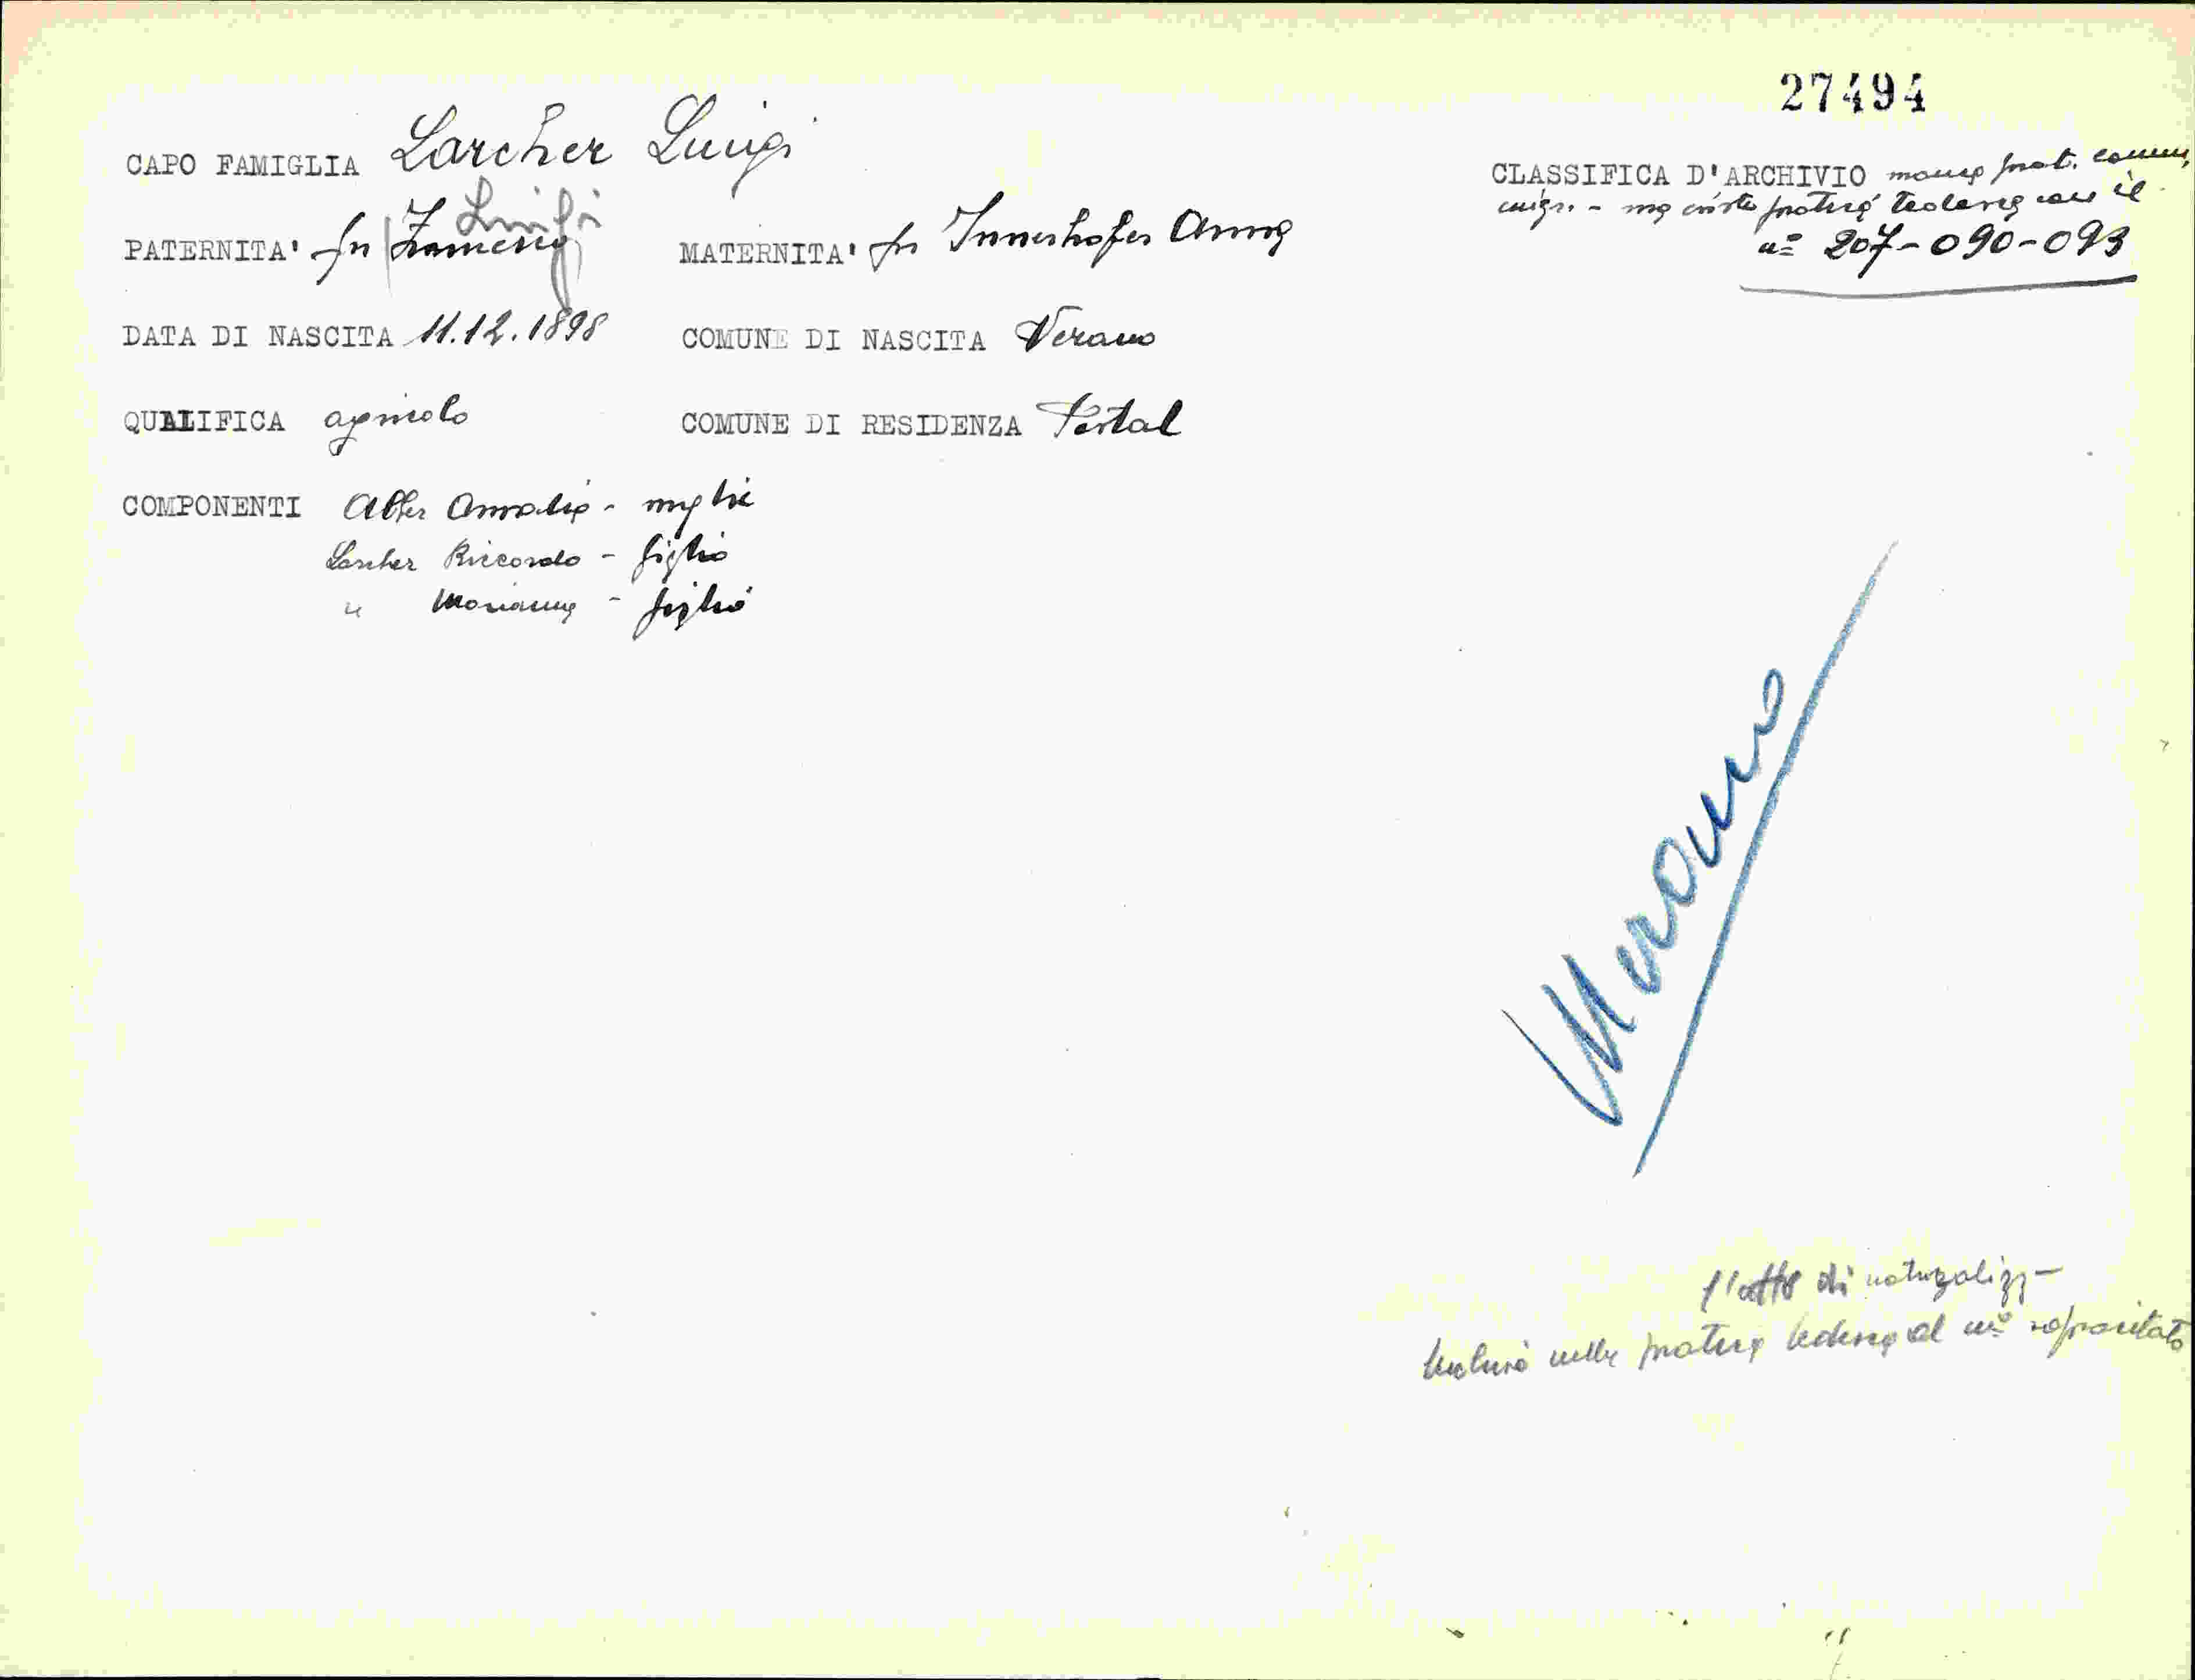 27494
CAPO FAMIGLIA Larcher Luigi
CLASSIFICA D'ARCHIVIO manca prat. comm.
migr. - ma esiste pratica tedesca con il
n° 207-090-093
Luigi
PATERNITA' fu Francesco MATERNITA' fu Innerhofer Anna
DATA DI NASCITA 11.12.1898 COMUNE DI NASCITA Verano
QUALIFICA agricolo COMUNE DI RESIDENZA Postal
COMPONENTI Amalia - moglie
Larcher Riccardo - figlio
" Marianna - figlia
Merano
l'atto di naturalizz-
nella pratica tedesca al n° sopracitato